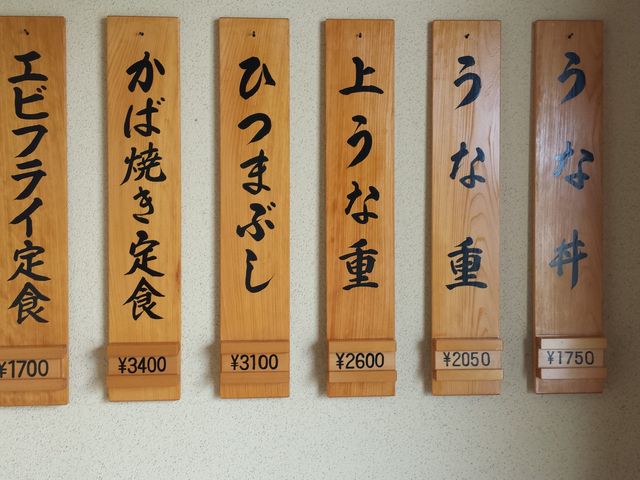 うな丼
¥1750
うな重
¥2050
上うな重
¥2600
ひつまぶし
¥3100
かば焼き定食
¥3400
エビフライ定食
¥1700